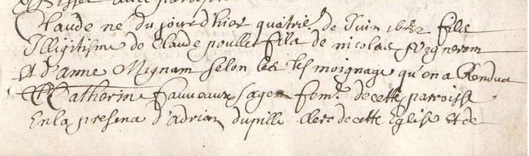 Claude né du jour d'hier quatrie de Juin fille
Illigitisme de Claude poullet fils de nicolas
Et d'anne Mignam selon les tesmoignage qu'en a Rendue
Catherin fauueaux sage fem̃e de cette paroisse
En la presena d'adrian dupille clerc de cette Eglise et de